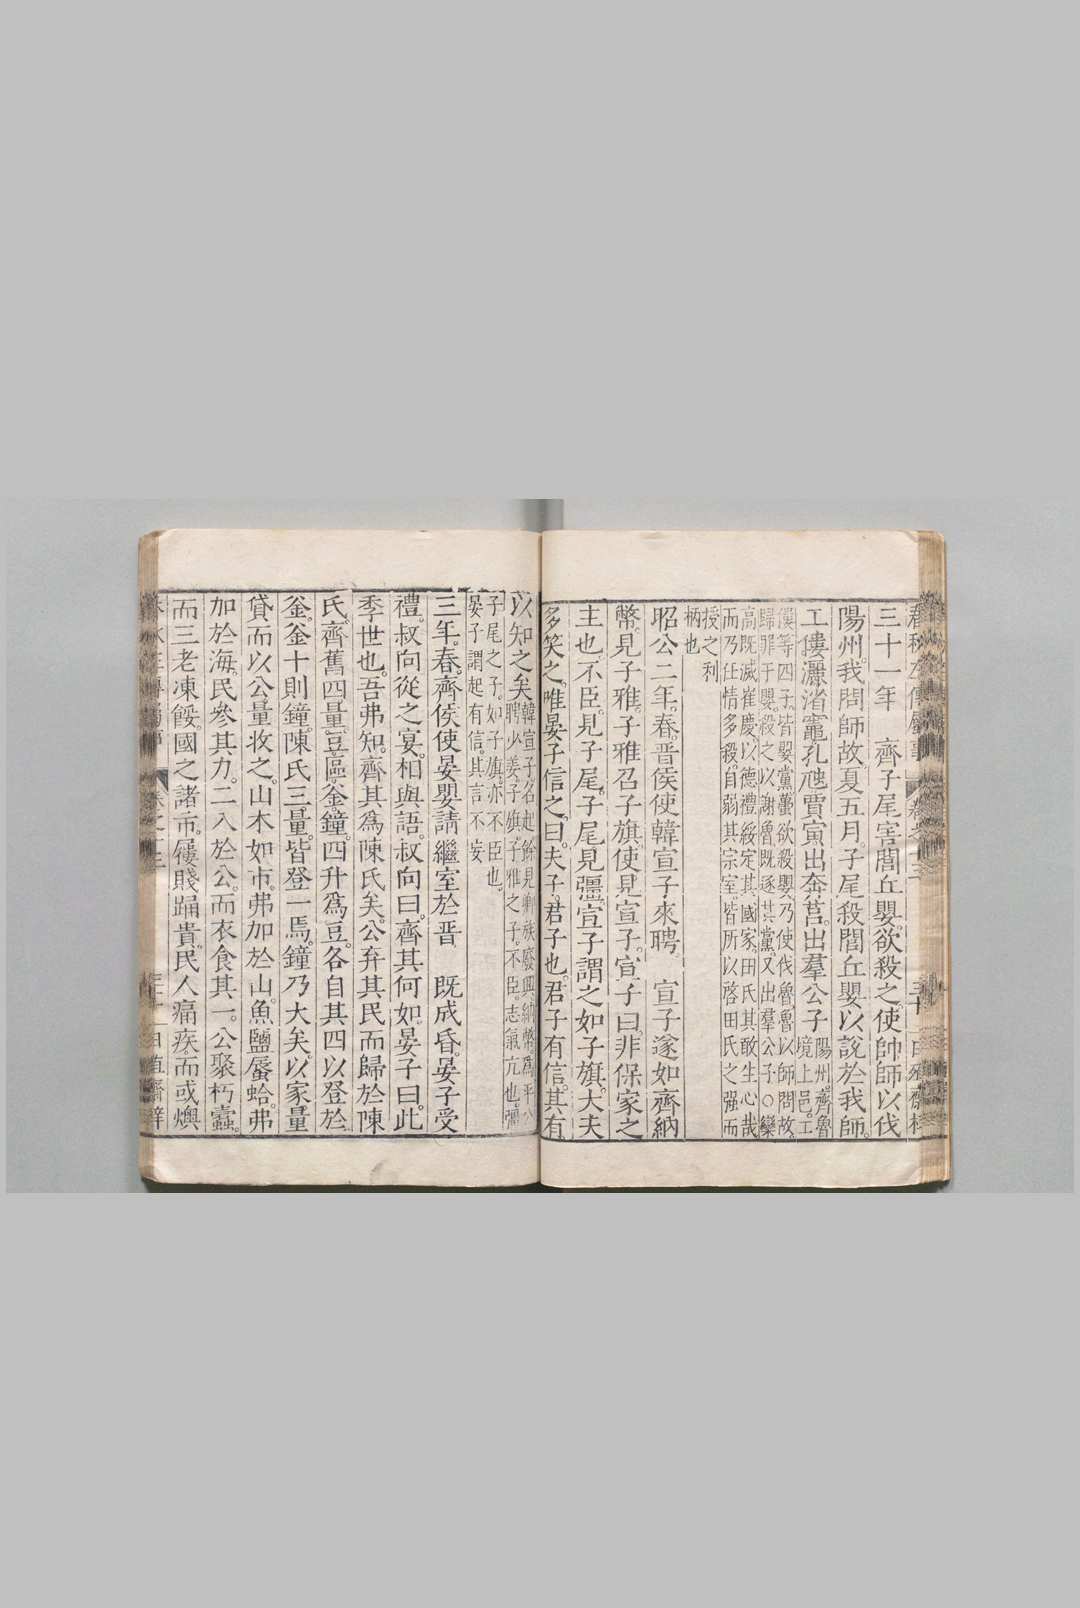 春秋左傳屬事
卷之十三
三十
三十一年 齊子尾害閭丘嬰。欲殺之。使帥師以伐
陽州。我問師故。夏五月。子尾殺閭丘嬰以說於我師。
工僂灑渻竈孔虺賈寅出奔莒。出羣公子陽州。齊魯
境上邑。工
僂等四子。皆嬰黨蠆欲殺嬰。乃使伐魯。魯以師問故。
歸罪于嬰。殺之以謝魯。既逐其黨。又出羣公子○欒
高既滅崔慶。以德禮綏定其國家。田氏其敢生心哉
而乃任情多殺。自弱其宗室。皆所以啓田氏之强而
授之利
柄也
昭公二年。春。晋侯使韓宣子來聘。 宣子遂如齊納
幣。見子雅。子雅召子旗。使見宣子。宣子曰。非保家之
主也。不臣。見子尾。子尾見彊。宣子謂之如子旗。大夫
多笑之。唯晏子信之。曰。夫子。君子也。君子有信。其有
以知之矣韓宣子。名起。餘見卿族廢興。納幣。爲平公
聘少姜。子旗。子雅之子。不臣。志氣亢也。彊
子尾之子。如子旗。亦不臣也。
晏子謂起有信。其言不妄
三年。春。齊侯使晏嬰請繼室於晋 既成昏。晏子受
禮。叔向從之宴。相與語。叔向曰。齊其何如。晏子曰。此
季世也。吾弗知。齊其爲陳氏矣。公弃其民而歸於陳
氏。齊舊四量。豆。區。釜。鐘。四升爲豆。各自其四以登於
釜。釜十則鐘。陳氏三量。皆登一焉。鐘乃大矣。以家量
貸而以公量收之。山木如市。弗加於山。魚鹽蜃蛤。弗
加於海。民參其力。二入於公。而衣食其一。公聚朽蠹。
而三老凍餒。國之諸市。屨賤踊貴。民人痛疾。而或燠
卷之十三